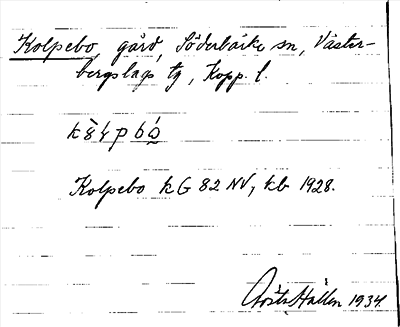 Kolpebo, gård, Söderbärke sn, Väster-
bergslags tg, Kopp. l.
Kolpebo kG 82 NV, kb 1928.
Gösta Hallén 1934.